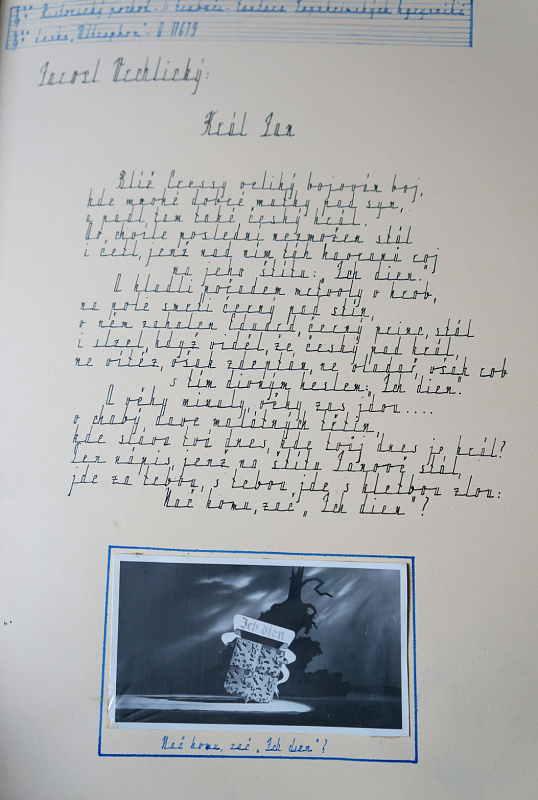 Historický pochod:
české „Ultraphon":
Jarosl. Vrchlický:
Král Jan
Blíž Cressy veliký bojován boj,
kde mnohé dobré matky pad syn,
a padl tam také český král.
Do chvíle poslední nezmožen stál
i četl, jenž nad ním táh havranů roj
na jeho štítu: „Ich dien."
A kladli pořadem mrtvoly v hrob,
na pole smrti černý pad stín,
v něm zahalen Eduard, černý princ, stál
i slzel, když viděl, že český pad král,
ne vítěz, však zdeptán, ne vladař, však rob
s tím divným heslem: „Ich dien."
A věky minuly, věky zas jdou....
ó chabý dave malátných třtin,
kde sláva tvá dnes, kde tvůj dnes je král?
Ten nápis, jenž na štítu Janově stál,
jde za tebou, s tebou jde, s kletbou zlou:
Nač komu, zač „Ich dien"?
Ich dien
Nač komu, zač „Ich dien"?